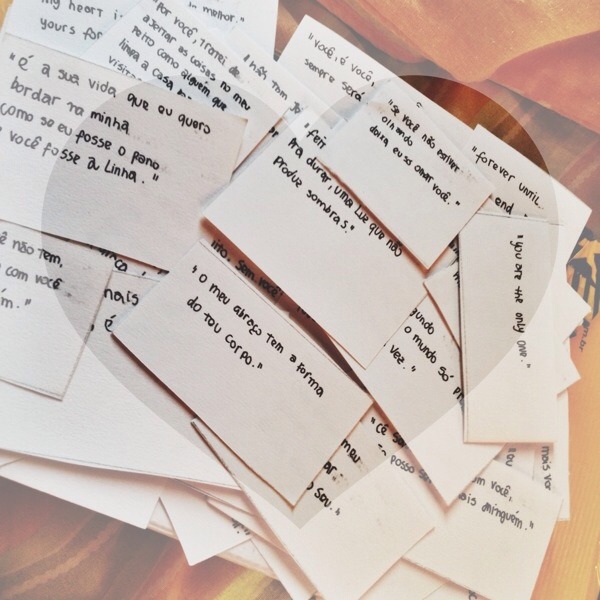 my heart is
yours for
in melhor."
"é a sua vida que eu quero
bordar na minha
como se eu fosse o pano
você fosse a linha."
por você, tratei de
acertar as coisas no meu
peito como alguém que
limpa a casa
visita
"não tem
"você, é você
sempre será
"se você não estiver
olhando
deixa eu só amar você."
pra durar, uma luz que não
produz sombras."
"forever until...
end
"you are the only one."
ê não tem,
com você
m."
nais
é
into. Sem você!
"O meu abraço tem a forma
do teu corpo."
gundo
o mundo só
vez."
"cê
posso
meu
seu."
om você,
ais ninguém."
mais vo
om.br